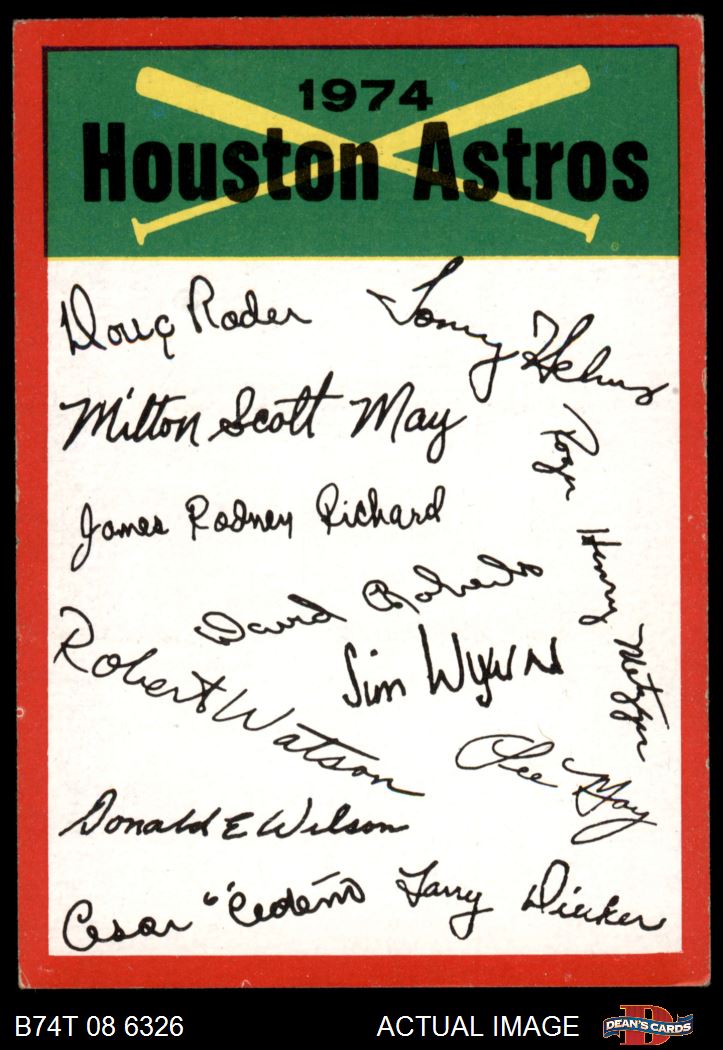 1974
Houston Astros
Doug Rader
Tommy Helms
Milton Scott May
Roger Henry Metzger
James Rodney Richard
David Roberts
Robert Watson
Jim Wynn
Lee May
Donald E Wilson
Cesar "Cedeño
Larry Dierker
B74T 08 6326
ACTUAL IMAGE
DEAN'S CARDS